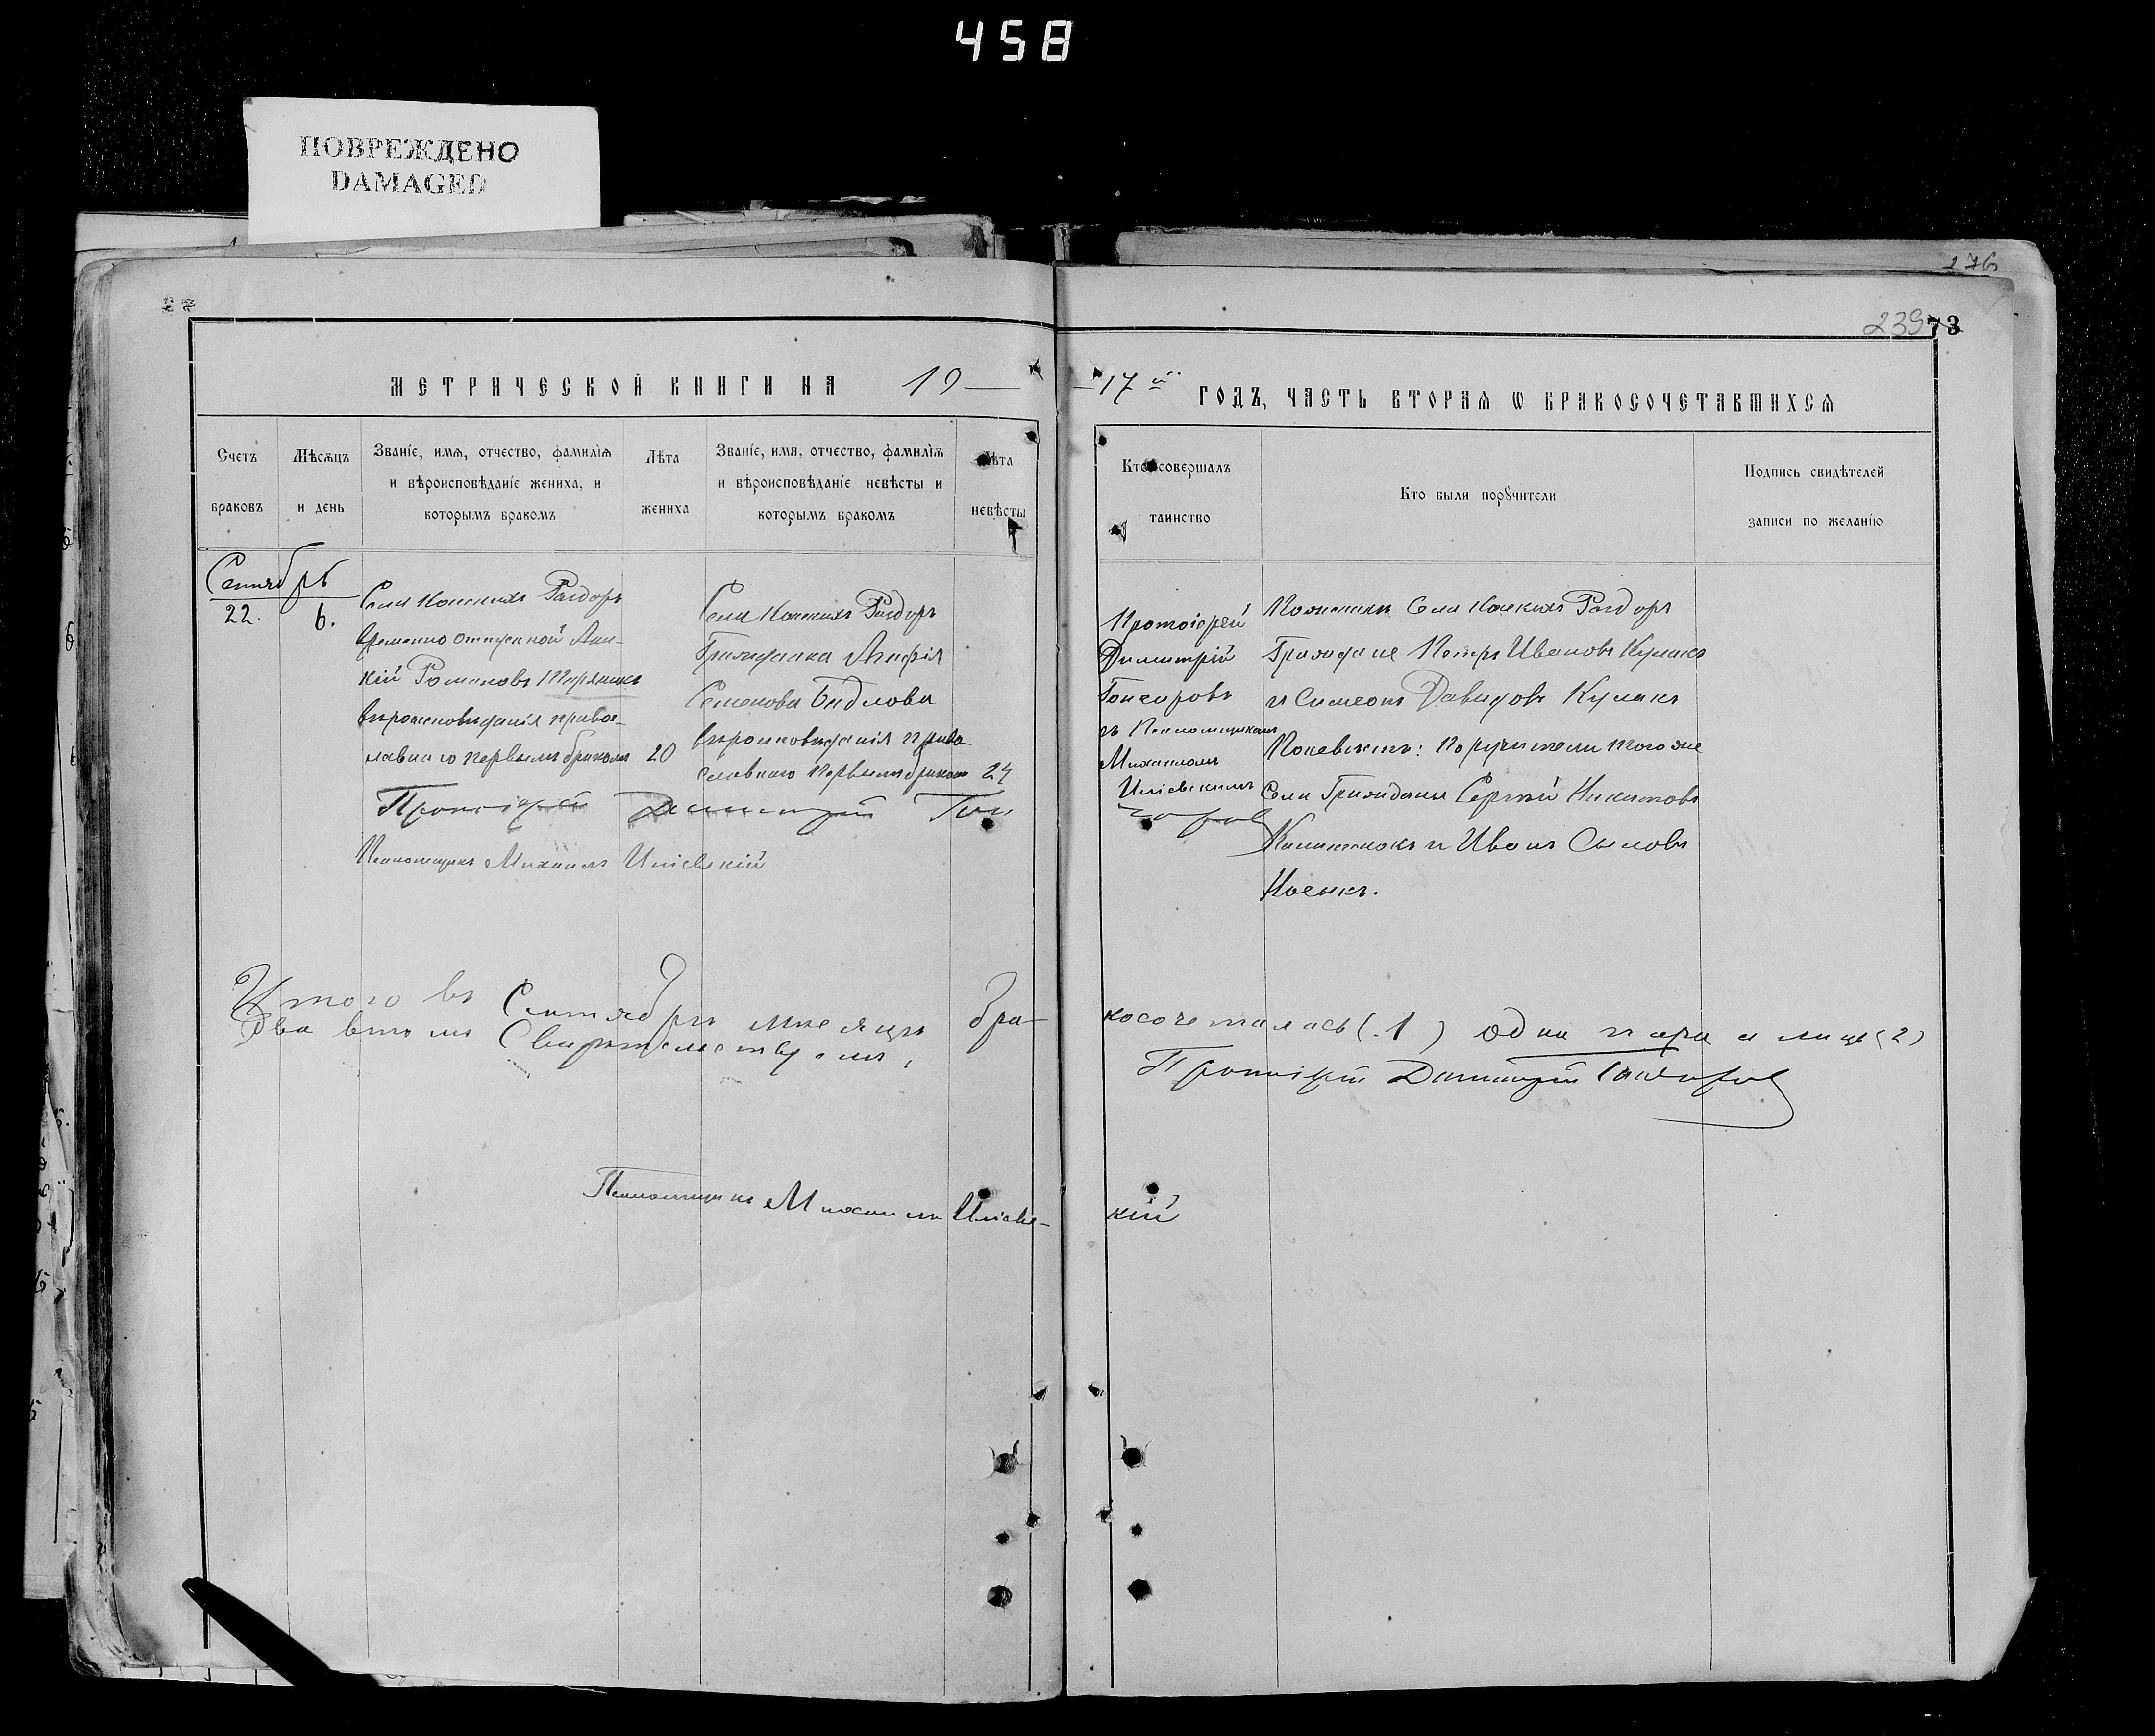 458
ПОВРЕЖДЕНО
DAMAGED
276
239 73
МЕТРИЧЕСКОЙ КНИГИ НА 19
17й ГОДЪ, ЧАСТЬ ВТОРАЯ Ѡ БРАКОСОЧЕТАВШИХСЯ
Счетъ
браковъ
Мѣсяцъ
и день
Званіе, имя, отчество, фамилія
и вѣроисповѣданіе жениха, и
которымъ бракомъ
Лѣта
жениха
Званіе, имя, отчество, фамилія
и вѣроисповѣданіе невѣсты и
которымъ бракомъ
Лѣта
невѣсты
Кто совершалъ
таинство
Кто были порꙋчители
Подпись свидѣтелей
записи по желанію
Сентябрь
22.
6.
Села Конскихъ Раздоръ
временно отпускной
кій Романовъ
вѣроисповѣданія правос-
лавнаго первымъ бракомъ
20
Села Конскихъ Раздоръ
Гражданка Агафія
Семенова
вѣроисповѣданія право
славнаго первымъ бракомъ
24
Протоіерей
Димитрій
Гончаровъ
съ Псаломщикомъ
Михаиломъ
Иліевскимъ
По женихѣ Села Конскихъ Раздоръ
Граждане Петръ Ивановъ Кулакъ
и Симеонъ Давидовъ Кулакъ
По невѣстѣ: поручители того же
Села Граждане Сергѣй Никитовъ
и Иванъ
Носенкъ.
Протоіерей Димитрій Гон
чаровъ
Псаломщикъ Михаилъ Иліевскій
Итого въ Сентябрѣ мѣсяцѣ бра-
косочеталась (1) одна пара а лицъ (2)
два въ чемъ Свидѣтельствуемъ,
Протоіерей Димитрій Гончаровъ
Псаломщикъ Михаилъ Иліевс-
кій